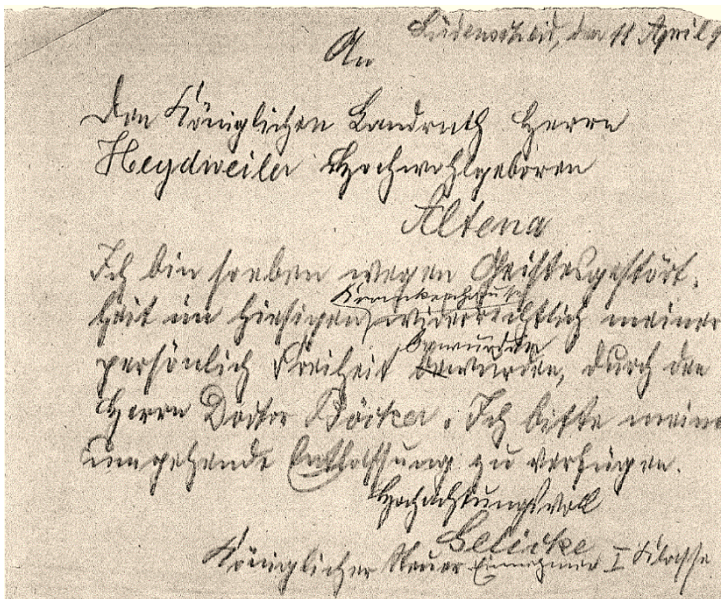 Lüdenscheid, den 11 April 9
An
Den Königlichen Landrath Herrn
Heydweiler Hochwohlgeboren
Altena
Ich bin soeben wegen Geistesgestört-
Krankenhause
heit im hiesigen widerrechtlich meiner
persönlich Freiheit bewurden, durch den
Herrn Doctor Böcker. Ich bitte meine
umgehende Entlassung zu verfügen.
Hochachtungsvoll
Gelicke
Königlicher Steuer Einnehmer I Klasse